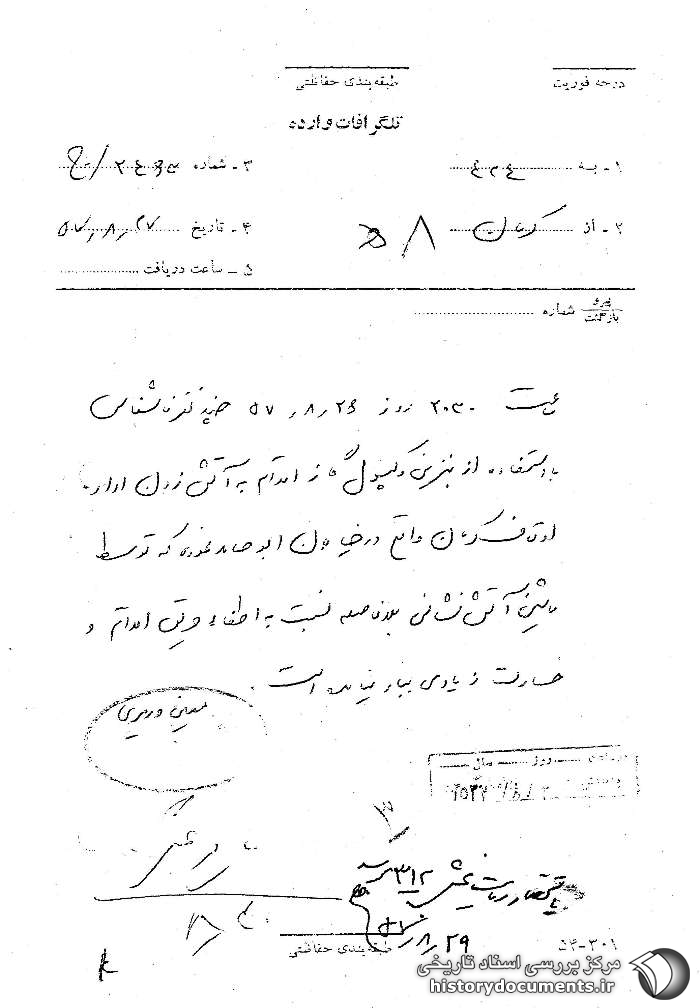 درجه فوریت
طبقه‌بندی حفاظتی
تلگرافات وارده
۱ - به
۳ - شماره
۲ - از کرمان
۴ - تاریخ ۵۷٫۸٫۲۷
۵ - ساعت دریافت
پیرو
بازگشت
شماره
ساعت ۲۰۳۰ روز ۵۷٫۸٫۲۶ چند نفر ناشناس
با استفاده از بنزین و کپسول گاز اقدام به آتش زدن اداره
اوقاف کرمان واقع در خیابان ابوحامد نموده که توسط
ماشین آتش نشانی بلافاصله نسبت به اطفاء حریق اقدام و
خسارت زیادی ببار نیامده است.
معینی وزیری
روز سال
۳۱۲
۵۷٫۸٫۲۹
طبقه‌بندی حفاظتی
۵۴-۳۰۱
مرکز بررسی اسناد تاریخی
historydocuments.ir